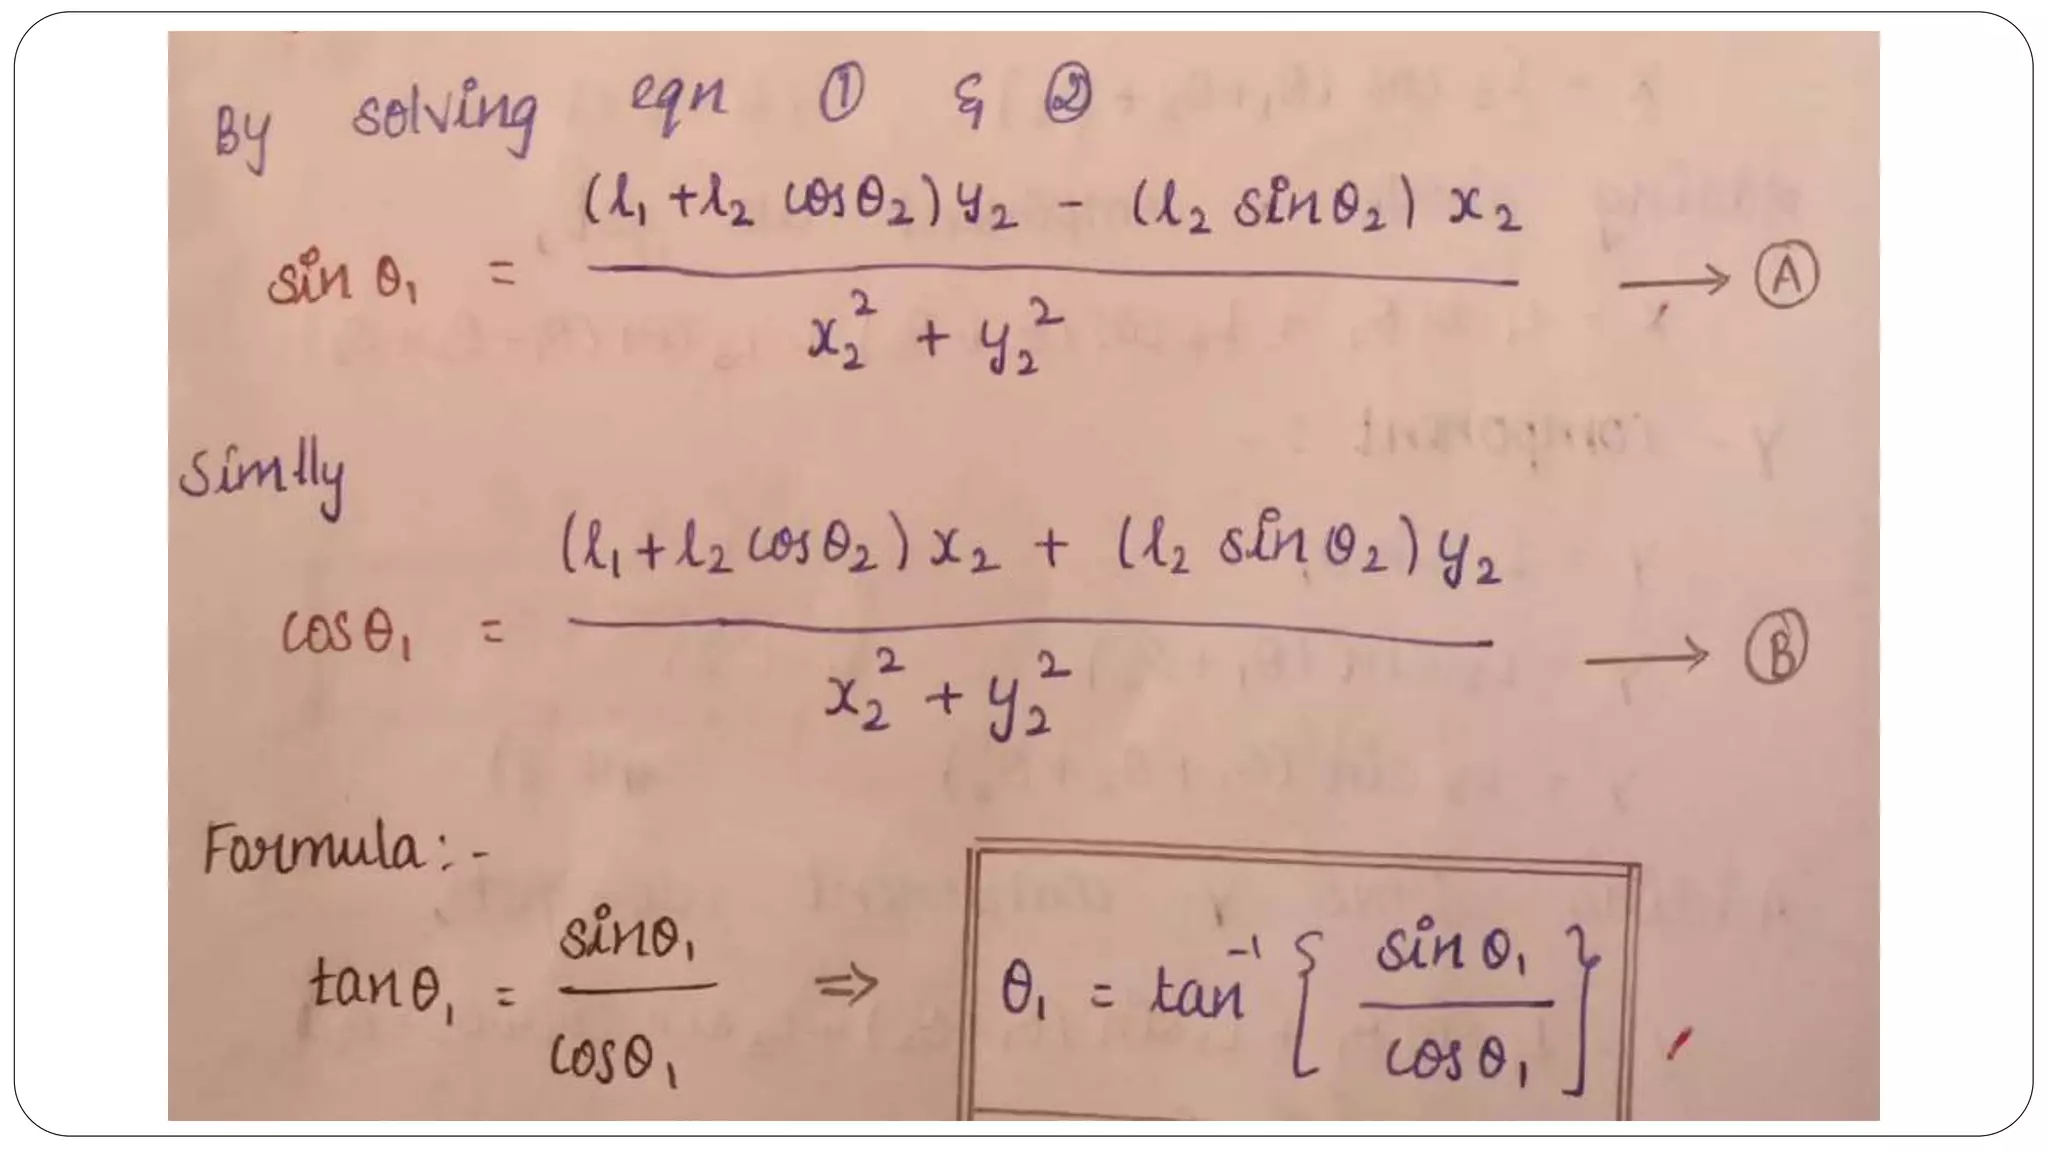 By solving eqn ① & ②
sin θ₁ = (l₁ + l₂ cosθ₂) y₂ - (l₂ sinθ₂) x₂ / x₂² + y₂² → Ⓐ
Simlly
cosθ₁ = (l₁ + l₂ cosθ₂) x₂ + (l₂ sinθ₂) y₂ / x₂² + y₂² → Ⓑ
Formula:-
tanθ₁ = sinθ₁ / cosθ₁ ⇒ θ₁ = tan⁻¹ { sinθ₁ / cosθ₁ }